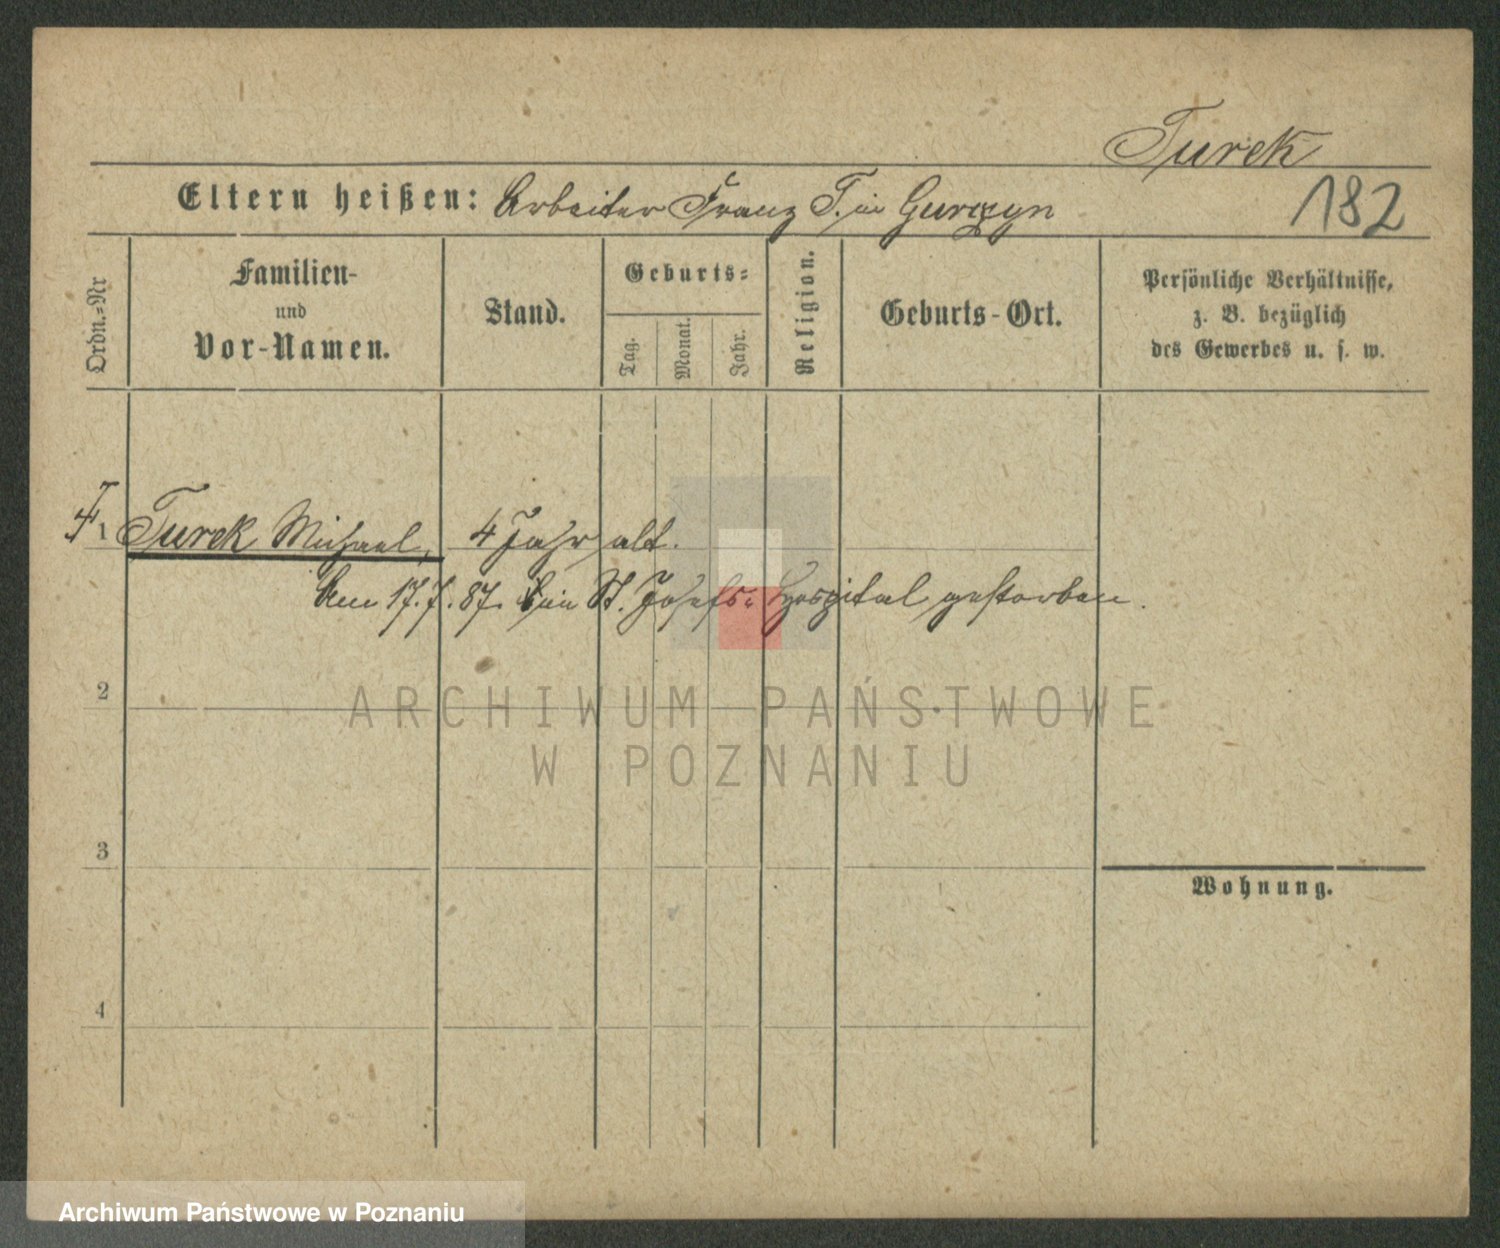 Turek
Eltern heißen: Arbeiter Franz T. in Gurczyn
182
Ordn.-Nr
Familien-
und
Vor-Namen.
Stand.
Geburts-
Tag.
Monat.
Jahr.
Religion.
Geburts-Ort.
Persönliche Verhältnisse,
z. B. bezüglich
des Gewerbes u. s. w.
1 Turek Michael, 4 Jahr alt.
Am 17.7.87. im St. Josefs-Hospital gestorben.
2
ARCHIWUM PAŃSTWOWE
W POZNANIU
3
Wohnung.
4
Archiwum Państwowe w Poznaniu